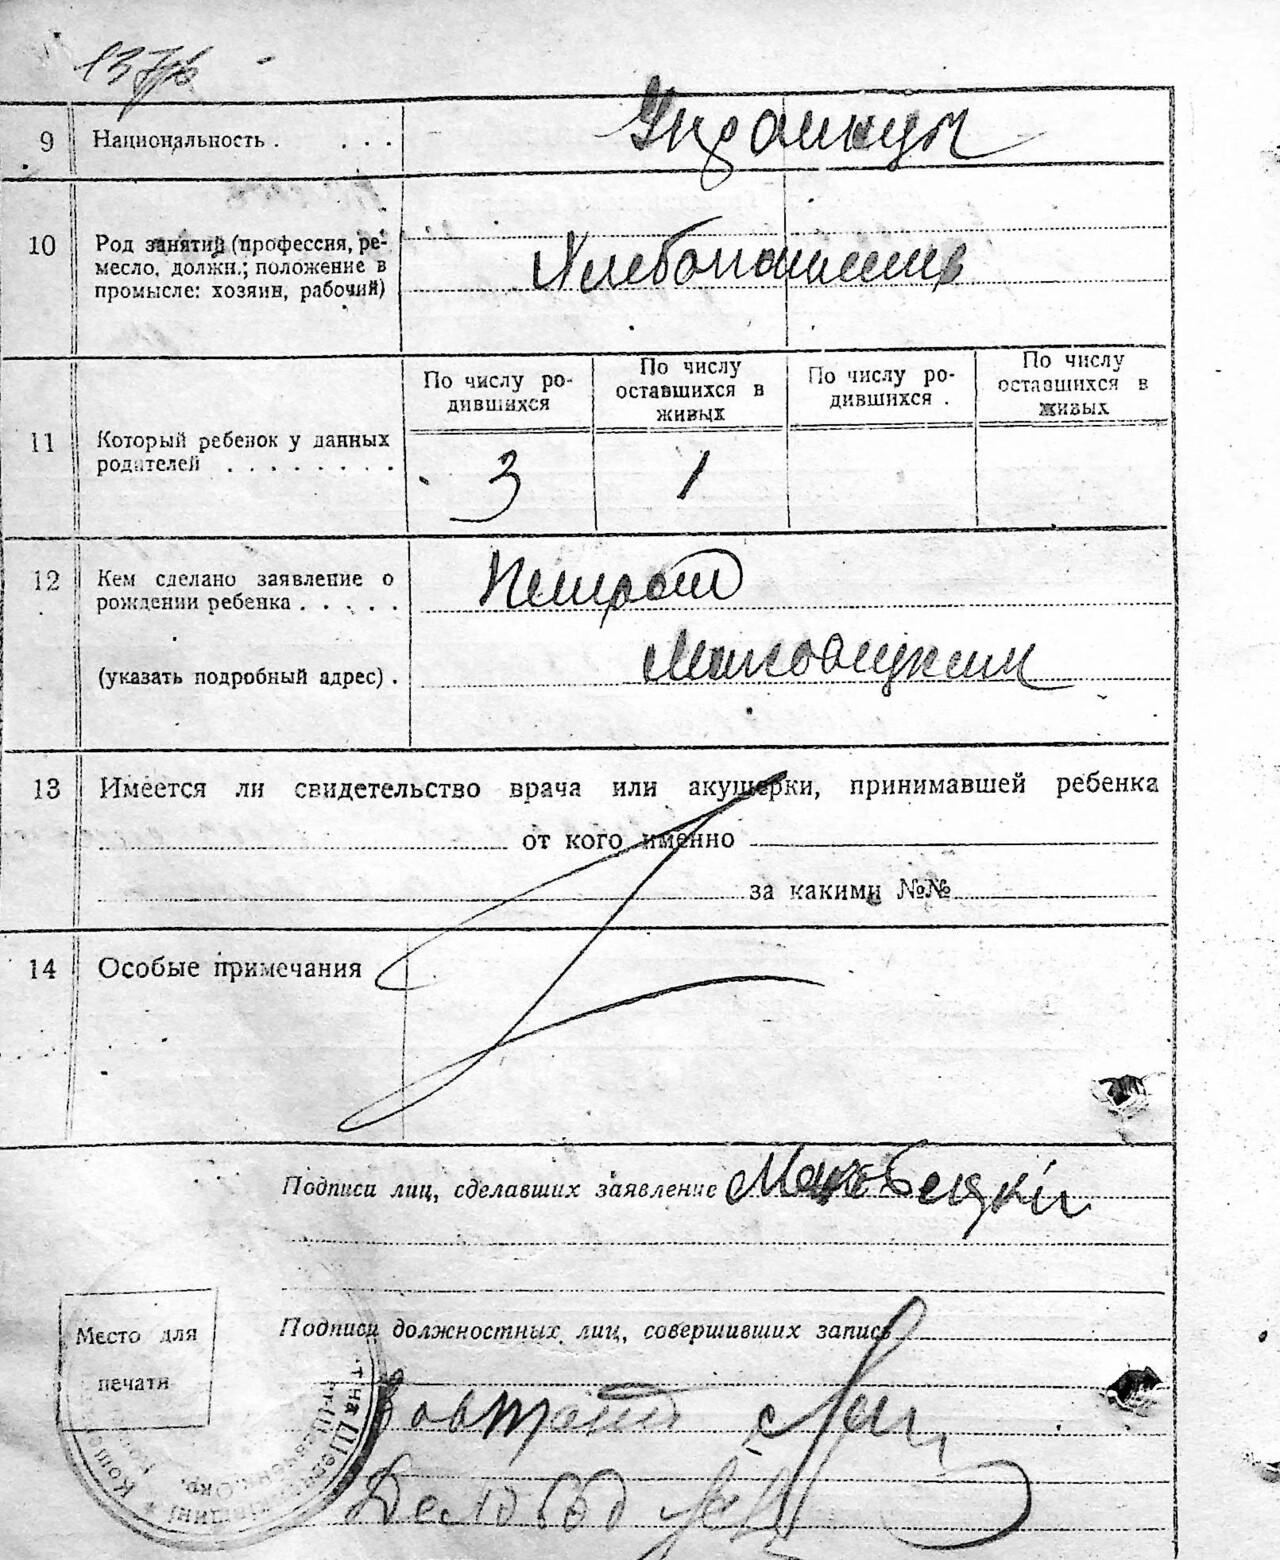 137/6
9 Национальность . . . . Украинцы
10 Род занятий (профессия, ре-
месло, должн.; положение в
промысле: хозяин, рабочий)
Хлебопашец
11 Который ребенок у данных
родителей . . . . . . . .
По числу ро-
дившихся
По числу
оставшихся в
живых
По числу ро-
дившихся .
По числу
оставшихся в
живых
3 1
12 Кем сделано заявление о
рождении ребенка . . . . .
(указать подробный адрес) .
13 Имеется ли свидетельство врача или акушерки, принимавшей ребенка
от кого именно
за какими №№
14 Особые примечания
Подписи лиц, сделавших заявление
Подписи должностных лиц, совершивших запись
Место для
печати
Завзагс
Деловод